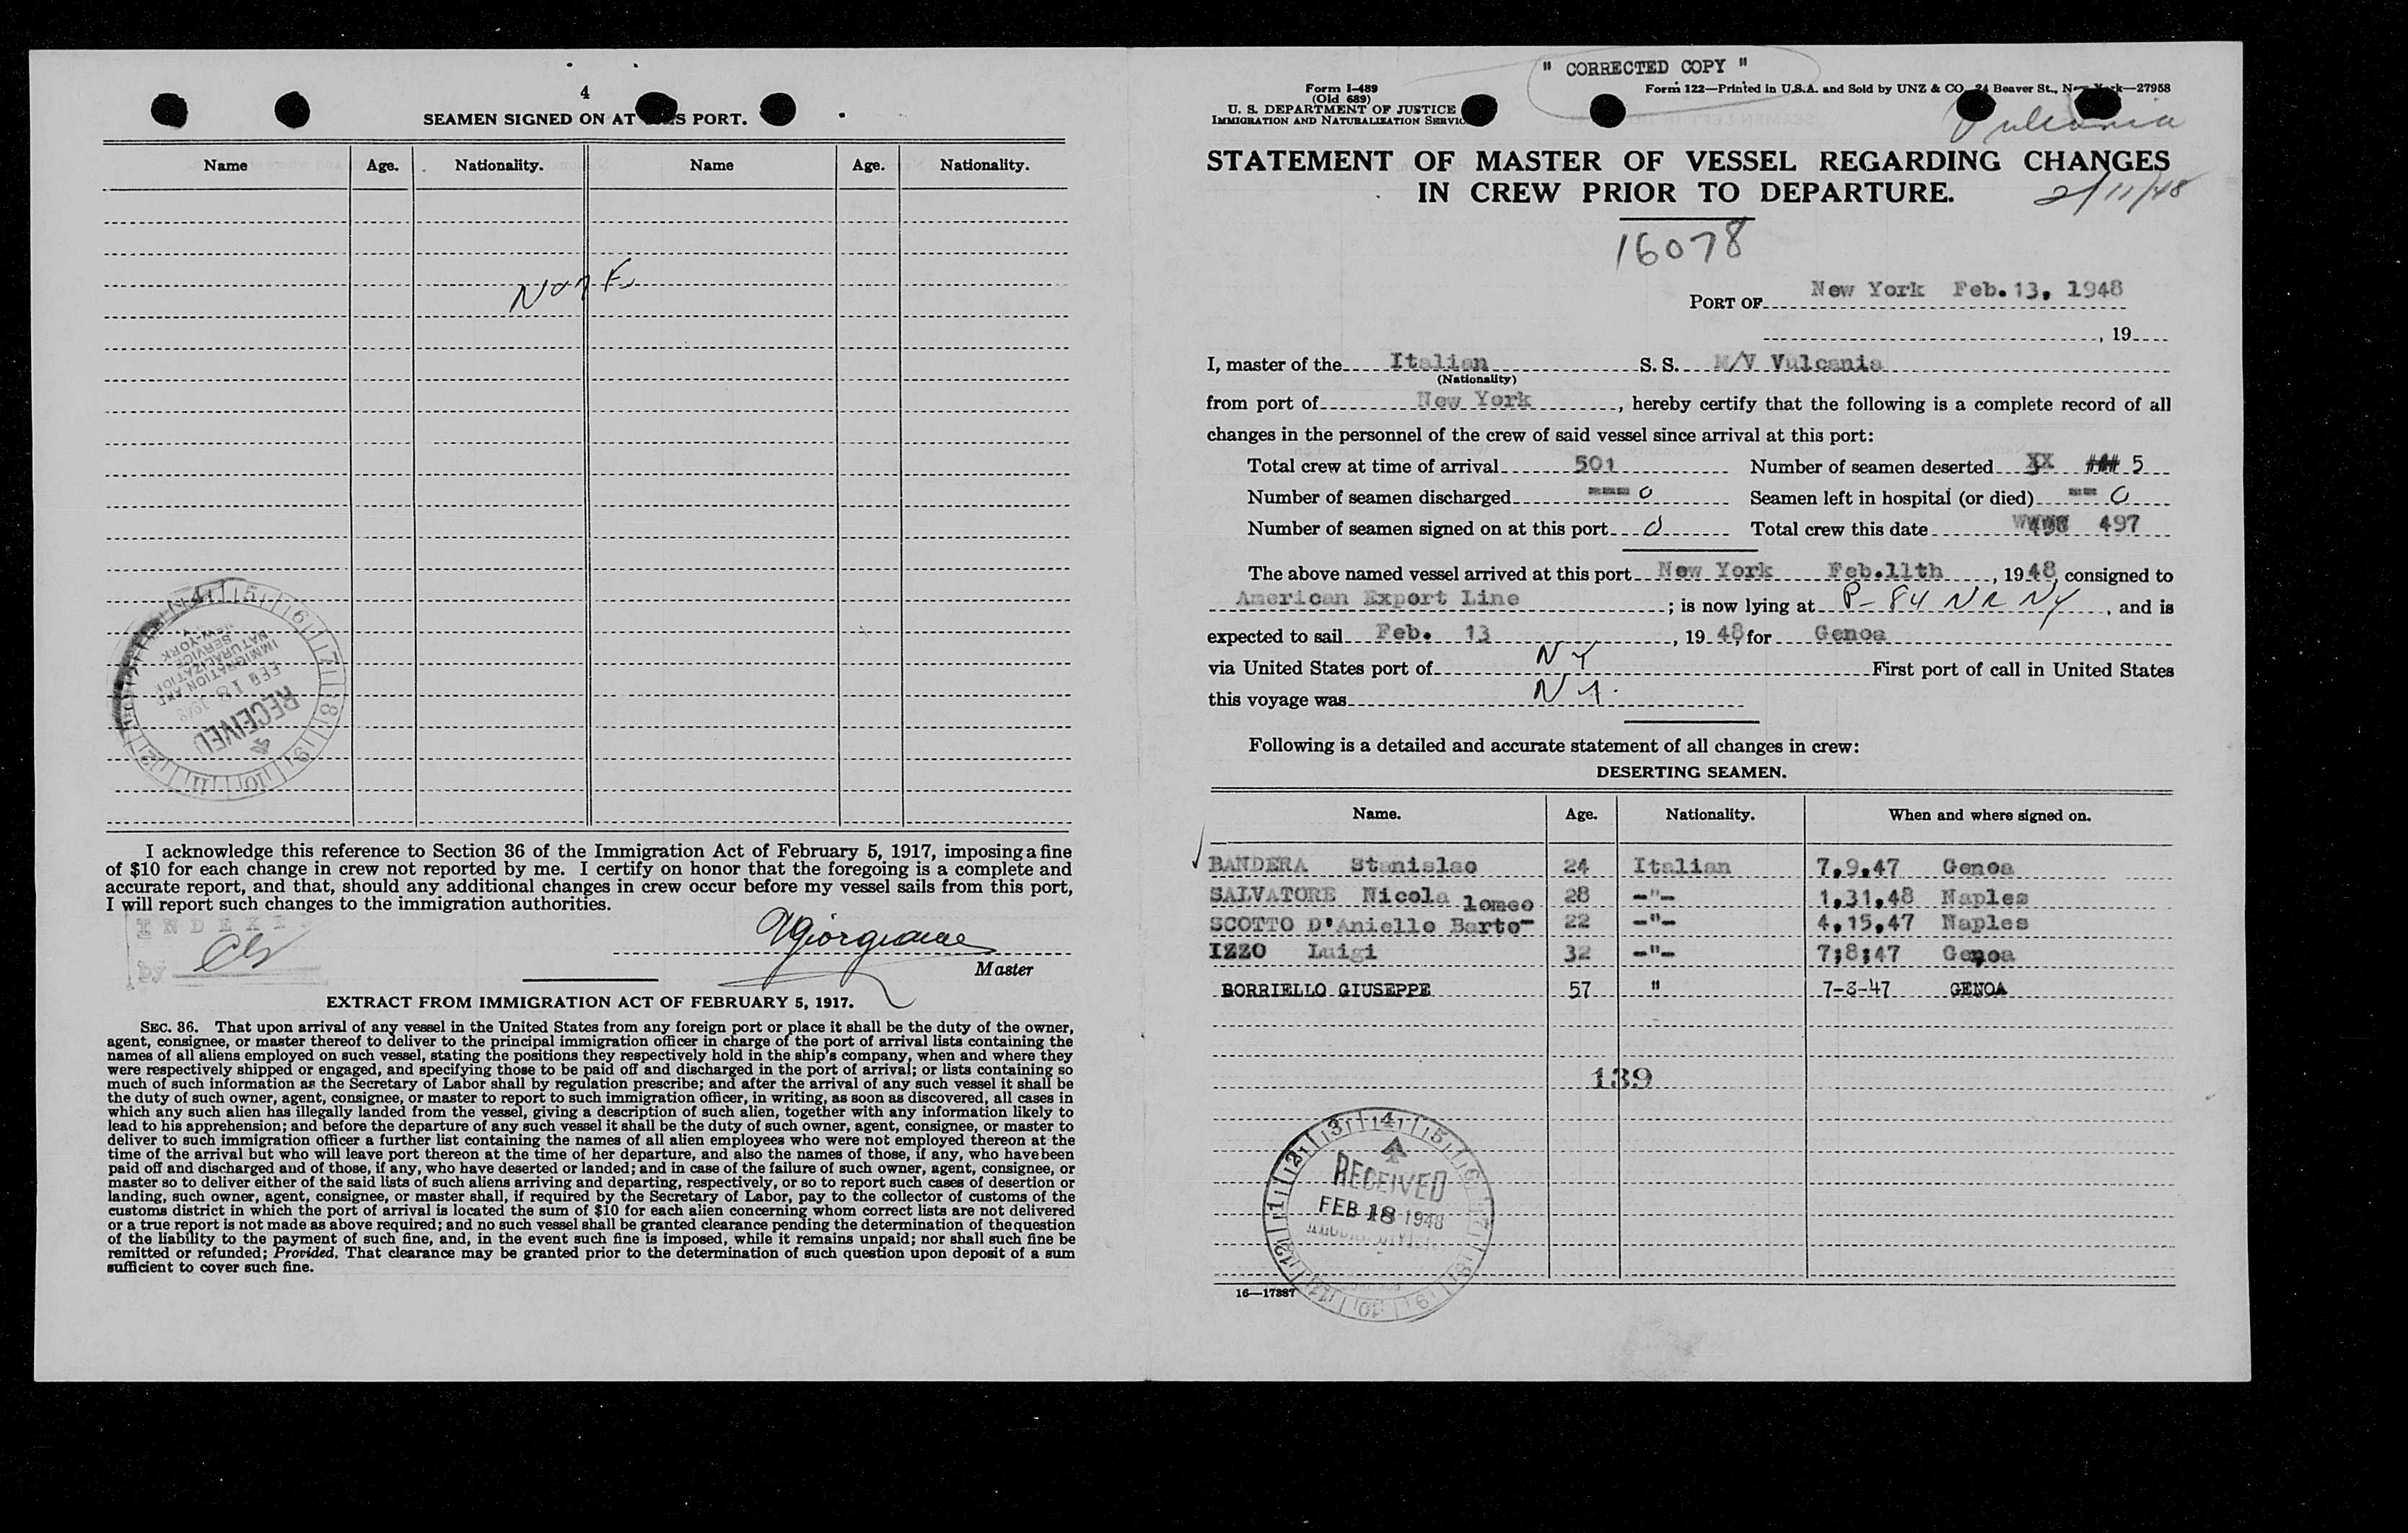 4
SEAMEN SIGNED ON AT THIS PORT.
Name Age. Nationality. Name Age. Nationality.
NONE
RECEIVED
FEB 18 1948
IMMIGRATION AND
NATURALIZATION
SERVICE
NEW-YORK
I acknowledge this reference to Section 36 of the Immigration Act of February 5, 1917, imposing a fine
of $10 for each change in crew not reported by me. I certify on honor that the foregoing is a complete and
accurate report, and that, should any additional changes in crew occur before my vessel sails from this port,
I will report such changes to the immigration authorities.
INDEXE
by
Master
EXTRACT FROM IMMIGRATION ACT OF FEBRUARY 5, 1917.
SEC. 36. That upon arrival of any vessel in the United States from any foreign port or place it shall be the duty of the owner,
agent, consignee, or master thereof to deliver to the principal immigration officer in charge of the port of arrival lists containing the
names of all aliens employed on such vessel, stating the positions they respectively hold in the ship's company, when and where they
were respectively shipped or engaged, and specifying those to be paid off and discharged in the port of arrival; or lists containing so
much of such information as the Secretary of Labor shall by regulation prescribe; and after the arrival of any such vessel it shall be
the duty of such owner, agent, consignee, or master to report to such immigration officer, in writing, as soon as discovered, all cases in
which any such alien has illegally landed from the vessel, giving a description of such alien, together with any information likely to
lead to his apprehension; and before the departure of any such vessel it shall be the duty of such owner, agent, consignee, or master to
deliver to such immigration officer a further list containing the names of all alien employees who were not employed thereon at the
time of the arrival but who will leave port thereon at the time of her departure, and also the names of those, if any, who have been
paid off and discharged and of those, if any, who have deserted or landed; and in case of the failure of such owner, agent, consignee, or
master so to deliver either of the said lists of such aliens arriving and departing, respectively, or so to report such cases of desertion or
landing, such owner, agent, consignee, or master shall, if required by the Secretary of Labor, pay to the collector of customs of the
customs district in which the port of arrival is located the sum of $10 for each alien concerning whom correct lists are not delivered
or a true report is not made as above required; and no such vessel shall be granted clearance pending the determination of the question
of the liability to the payment of such fine, and, in the event such fine is imposed, while it remains unpaid; nor shall such fine be
remitted or refunded; Provided, That clearance may be granted prior to the determination of such question upon deposit of a sum
sufficient to cover such fine.
" CORRECTED COPY "
Form I-489
(Old 689)
U. S. DEPARTMENT OF JUSTICE
IMMIGRATION AND NATURALIZATION SERVICE
Form 122—Printed in U.S.A. and Sold by UNZ & CO. 24 Beaver St., New York—27958
Vulcania
STATEMENT OF MASTER OF VESSEL REGARDING CHANGES
IN CREW PRIOR TO DEPARTURE.
2/11/48
16078
PORT OF New York Feb.13, 1948
, 19
I, master of the Italian S. S. M/V Vulcania
(Nationality)
from port of New York, hereby certify that the following is a complete record of all
changes in the personnel of the crew of said vessel since arrival at this port:
Total crew at time of arrival 501 Number of seamen deserted XX ### 5
Number of seamen discharged --- 0 Seamen left in hospital (or died) -- 0
Number of seamen signed on at this port 0 Total crew this date 497
The above named vessel arrived at this port New York Feb.11th, 1948, consigned to
American Export Line; is now lying at P-84 NR NY, and is
expected to sail Feb. 13, 1948, for Genoa
via United States port of NY First port of call in United States
this voyage was NY.
Following is a detailed and accurate statement of all changes in crew:
DESERTING SEAMEN.
Name. Age. Nationality. When and where signed on.
BANDERA Stanislao 24 Italian 7,9,47 Genoa
SALVATORE Nicola 28 -"- 1,31,48 Naples
lomeo
SCOTTO D'Aniello Barto- 22 -"- 4,15,47 Naples
IZZO Luigi 32 -"- 7;8;47 Genoa
BORRIELLO GIUSEPPE 57 " 7-3-47 GENOA
139
RECEIVED
FEB 18 1948
16—17887